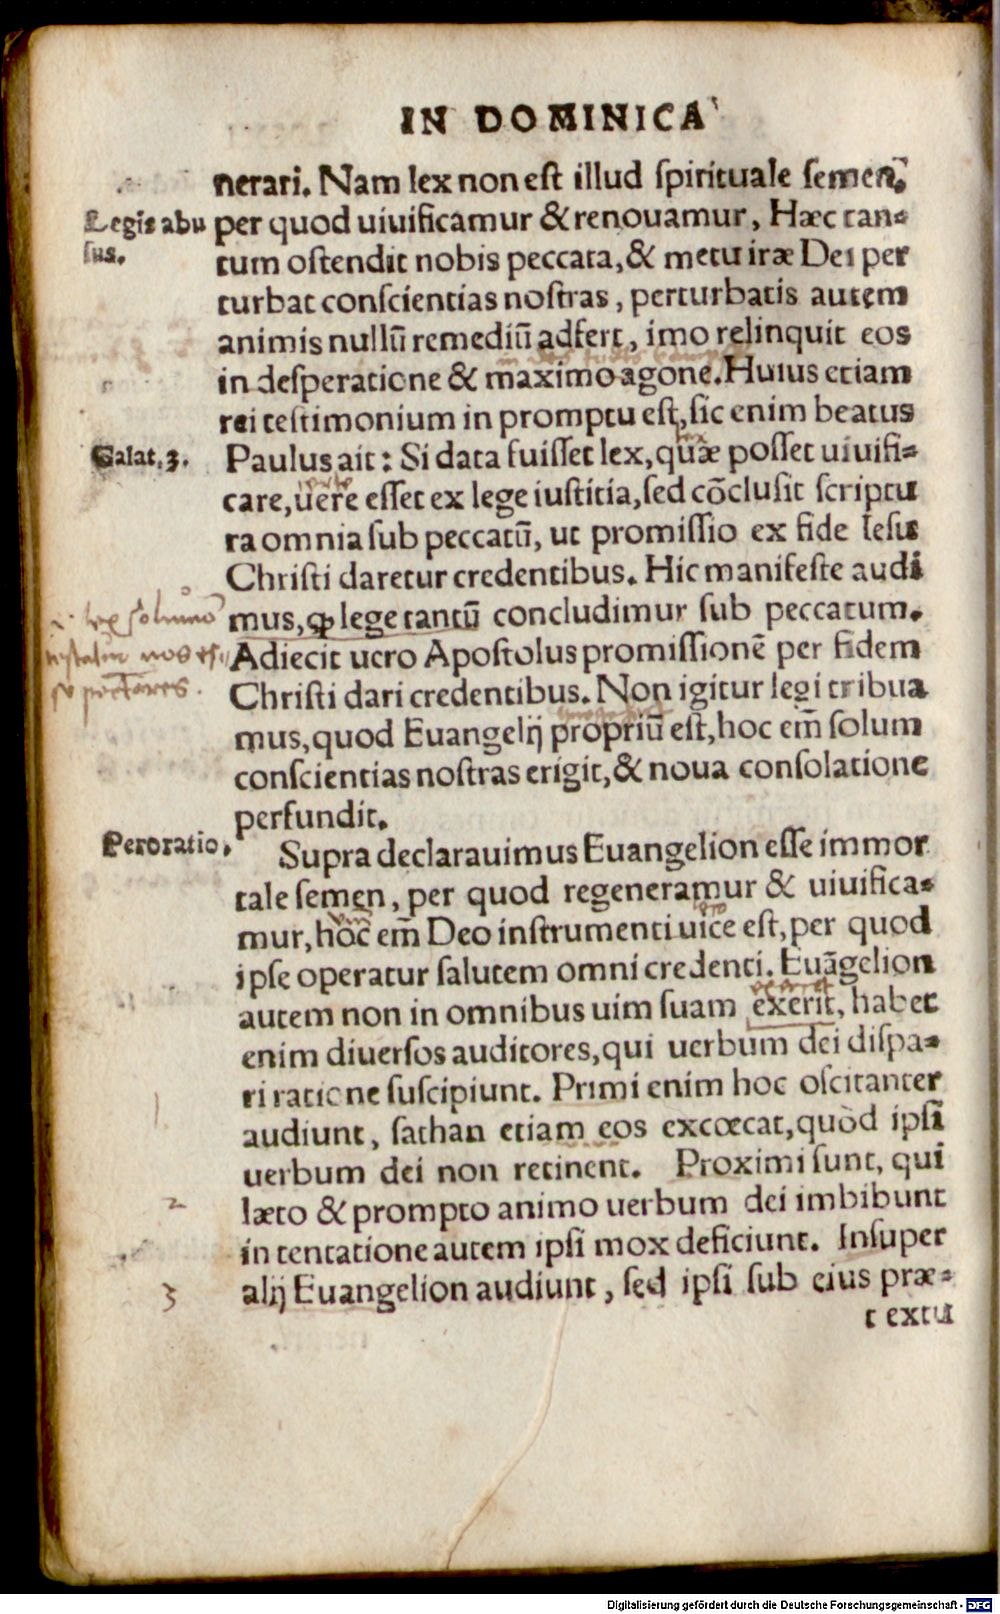 IN DOMINICA
nerari. Nam lex non est illud spirituale semen,
Legis abu
sus.
per quod uiuificamur & renouamur, Hæc tan-
tum ostendit nobis peccata, & metu iræ Dei per
turbat conscientias nostras, perturbatis autem
animis nullū remediū adfert, imo relinquit eos
in desperatione & maximo agone. Huius etiam
rei testimonium in promptu est, sic enim beatus
Galat. 3.
Paulus ait: Si data fuisset lex, quæ posset uiuifi-
care, uere esset ex lege iustitia, sed cōclusit scriptu
ra omnia sub peccatū, ut promissio ex fide Iesu
Christi daretur credentibus. Hic manifeste audi
mus, ꝙ lege tantū concludimur sub peccatum.
Adiecit uero Apostolus promissionē per fidem
Christi dari credentibus. Non igitur legi tribua
mus, quod Euangelij propriū est, hoc em̄ solum
conscientias nostras erigit, & noua consolatione
perfundit.
Peroratio.
Supra declarauimus Euangelion esse immor
tale semen, per quod regeneramur & uiuifica-
mur, hoc em̄ Deo instrumenti uice est, per quod
ipse operatur salutem omni credenti. Euāgelion
autem non in omnibus uim suam exerit, habet
enim diuersos auditores, qui uerbum dei dispa-
ri ratione suscipiunt. Primi enim hoc oscitanter
audiunt, sathan etiam eos excœcat, quòd ipsi
uerbum dei non retinent. Proximi sunt, qui
2
læto & prompto animo uerbum dei imbibunt
in tentatione autem ipsi mox deficiunt. Insuper
3
alij Euangelion audiunt, sed ipsi sub eius præ-
textu
Digitalisierung gefördert durch die Deutsche Forschungsgemeinschaft - DFG